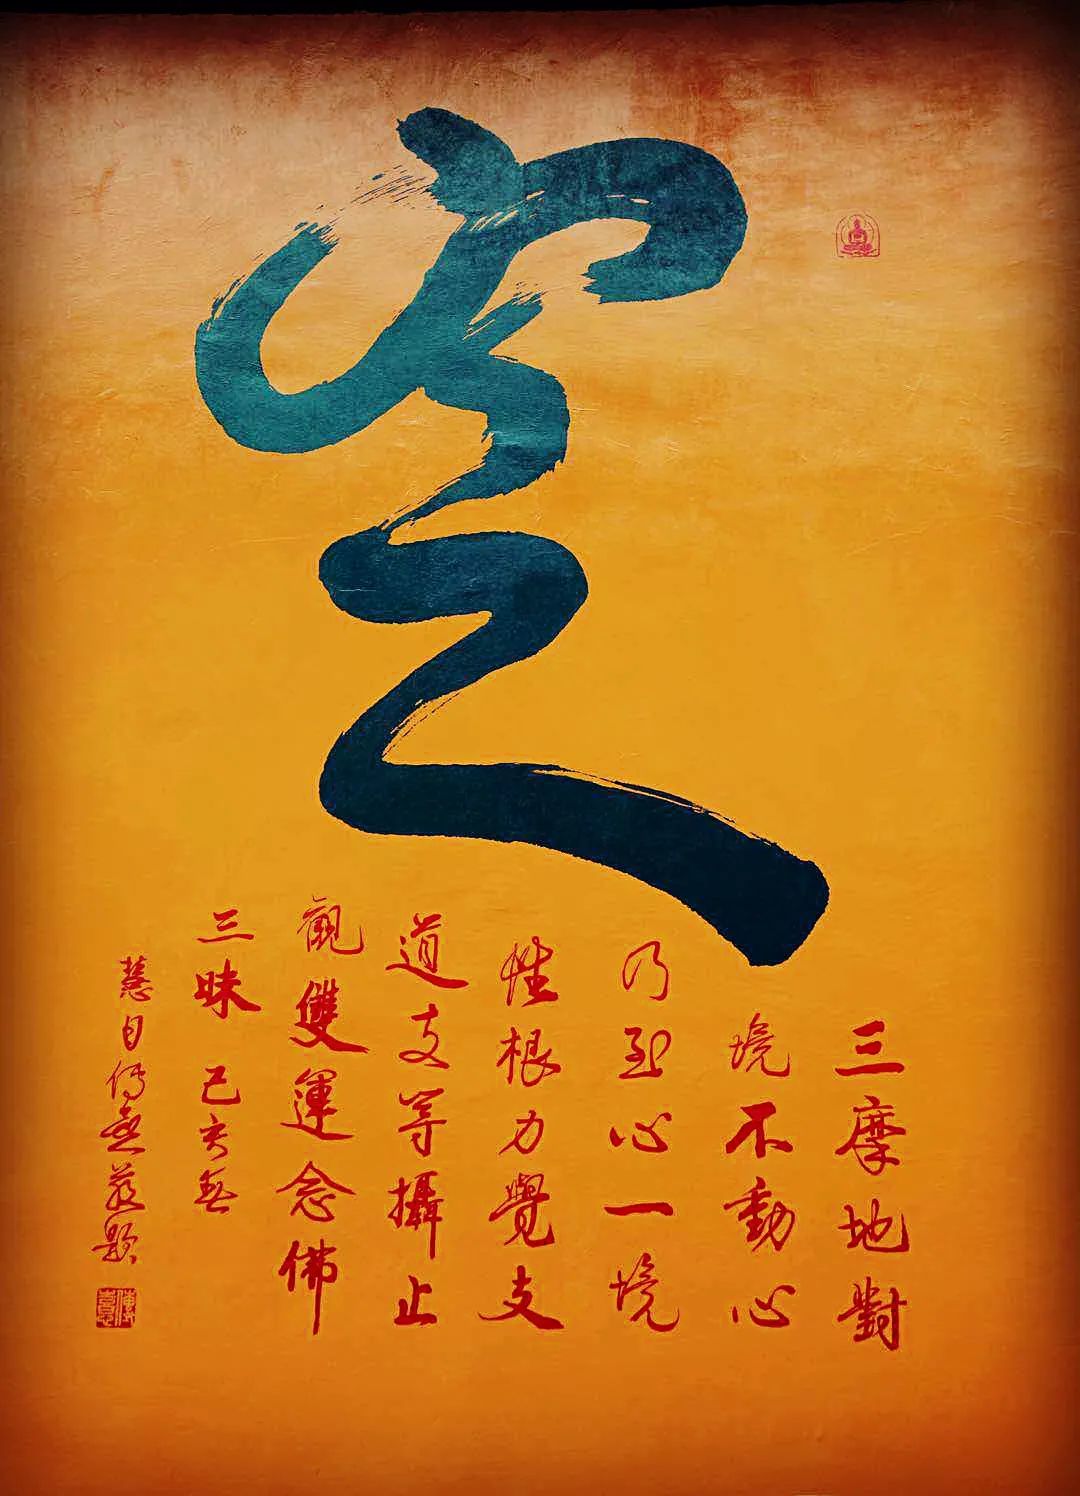 空
三摩地對
境不動心
乃至心一境
性根力覺支
道支等攝止
觀雙運念佛
三昧 己亥
慧目傳題